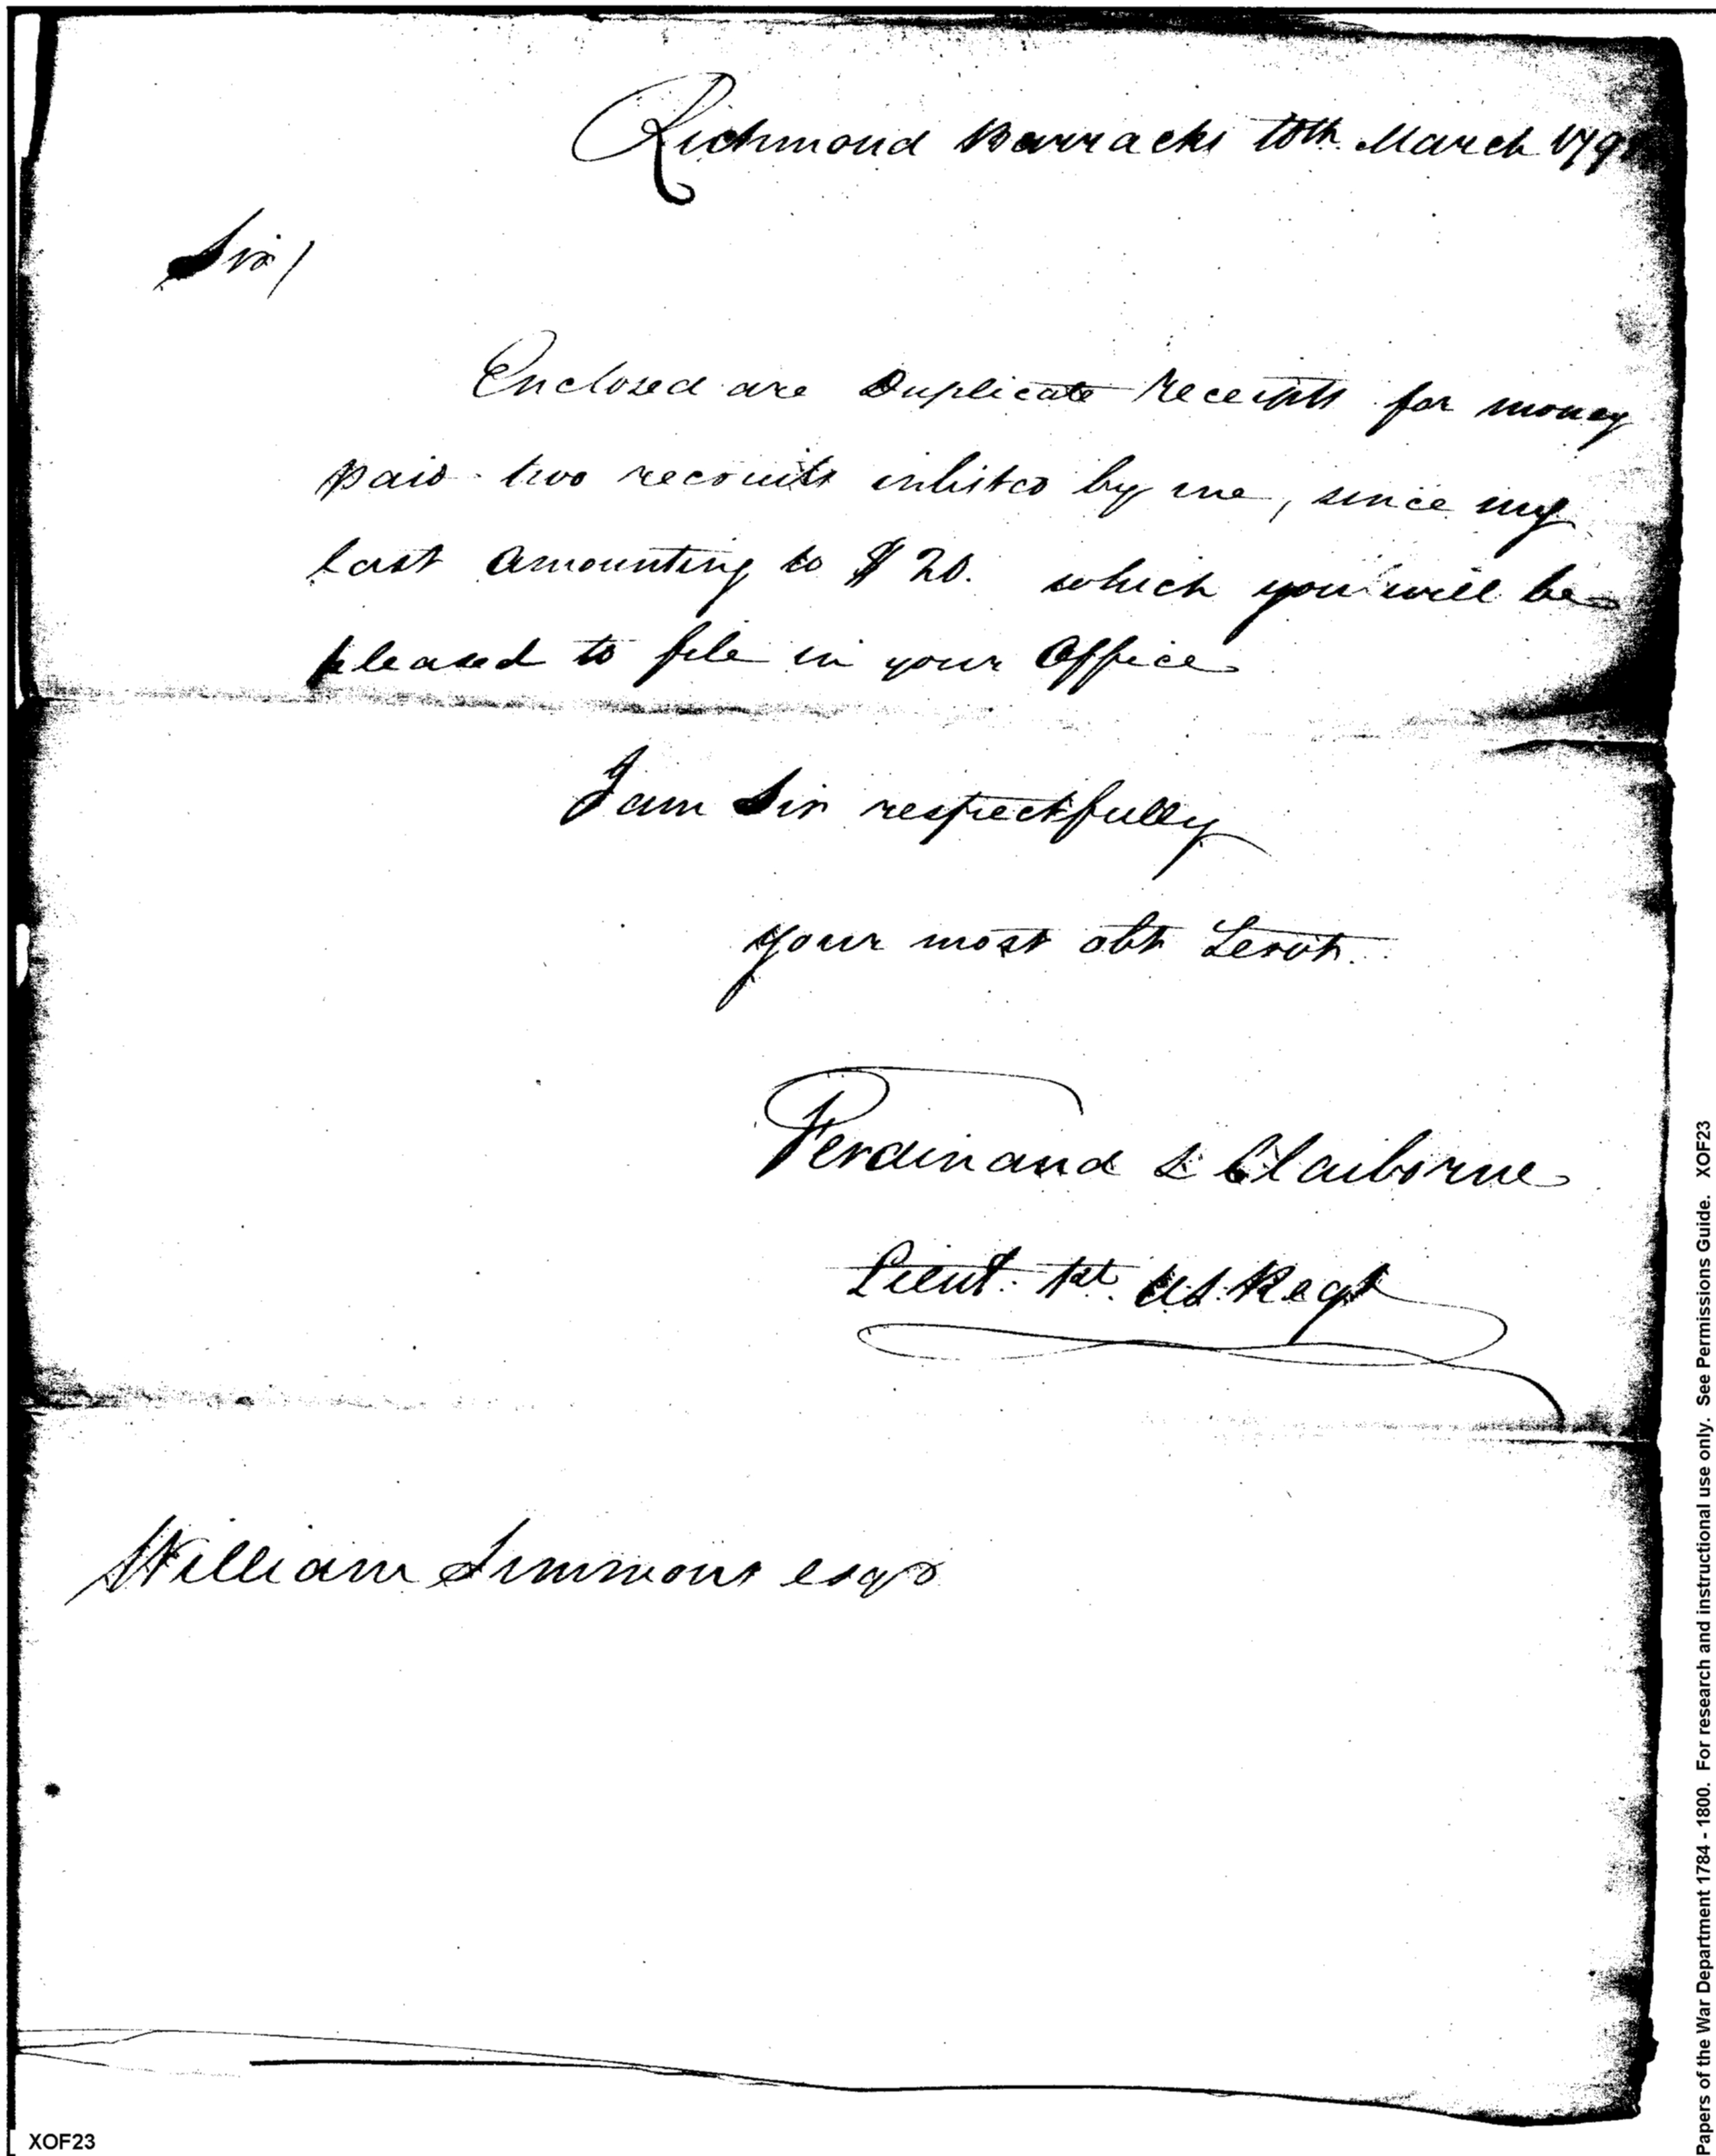 Richmond Barracks 10th March 179
Sir/
Enclosed are Duplicate Receipts for money
paid two recruits inlisted by me, since my
last amounting to $20. which you will be
pleased to file in your Office
I am Sir respectfully
your most obt Servt.
Ferdinand L Claiborne
Lieut. 1st. US Regt
William Simmons esqr
XOF23
Papers of the War Department 1784 - 1800. For research and instructional use only. See Permissions Guide. XOF23